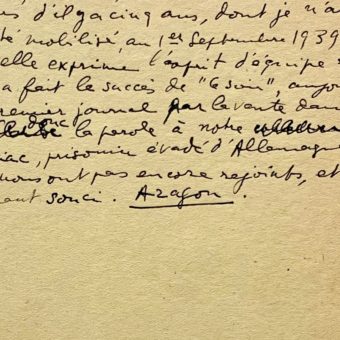 s d'il y a cinq ans, dont je n'a
té mobilisé, au 1er Septembre 1939
elle exprime l'esprit d'équipe
a fait le succès de "Ce soir", aujou
remier journal par la vente dan
donc la parole à notre
iac, prisonnier évadé d'Allemagne
nous ont pas encore rejoints, et
aut souci. Aragon.